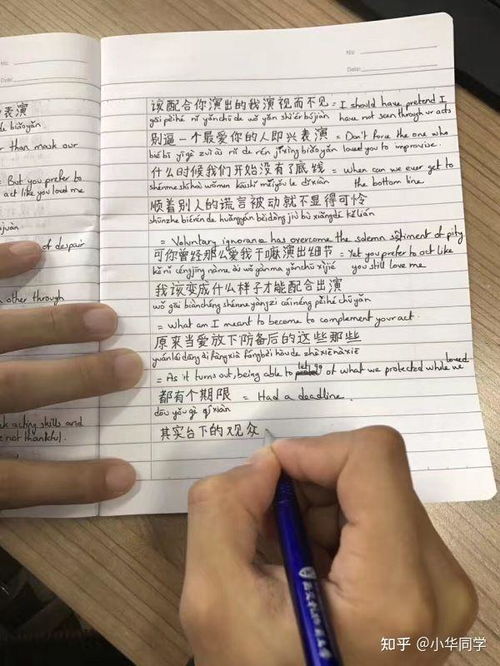 表演
de biǎoyǎn
than mask our
= But you prefer to
act like you loved me
of despair
other through
acting skills and
not thankful).
No:
Date:
No:
Date:
该配合你演出的我演视而不见 = I should have pretend I
gāi pèihé nǐ yǎnchū de wǒ yǎn shì'érbùjiàn have not seen through ur acts
别逼一个最爱你的人即兴表演 = Don't force the one who
bié bī yīgè zuì ài nǐ de rén jíxìng biǎoyǎn loved you to improvise.
什么时候我们开始没有了底线 = When can we ever get to
shénme shíhòu wǒmen kāishǐ méiyǒule dǐxiàn the bottom line.
顺着别人的谎言被动就不显得可怜
shùnzhe biérén de huǎngyán bèidòng jiù bù xiǎndé kělián
= Voluntary ignorance has overcome the solemn sentiment of pity
可你曾经那么爱我干嘛演出细节 = Yet you prefer to act like
kě nǐ céngjīng nàme ài wǒ gànma yǎnchū xìjié you still love me
我该变成什么样子才能配合出演
wǒ gāi biànchéng shénme yàngzi cáinéng pèihé chūyǎn
= What am I meant to become to complement your act.
原来当爱放下防备后的这些那些
yuánlái dāng ài fàngxià fángbèi hòu de zhèxiē nàxiē
= As it turns out, being able to letting of what we protected while we loved
都有个期限 = Had a deadline.
dōu yǒu gè qíxiàn
其实台下的观众
知乎 @小华同学